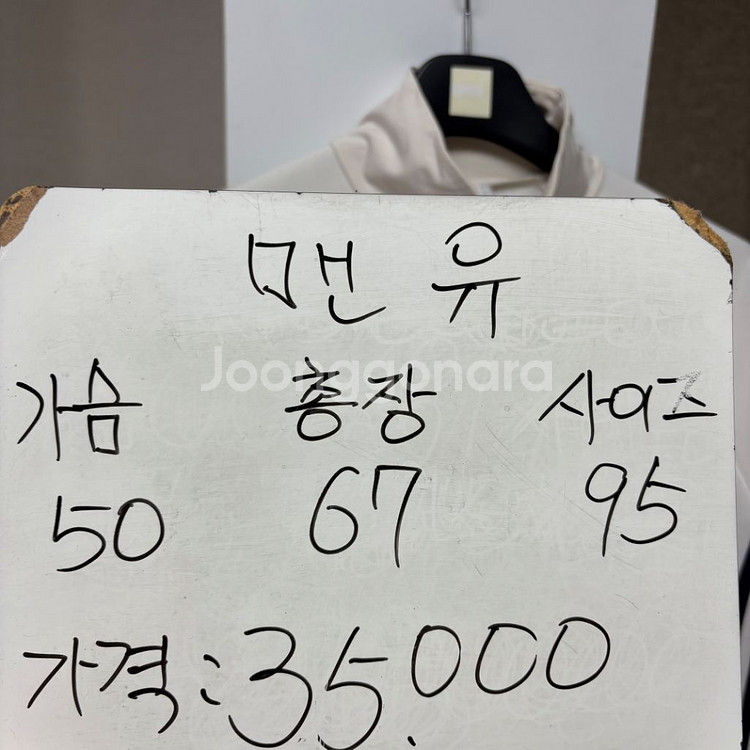 맨유
Joonggonara
가슴 총장 사이즈
50 67 95
가격:35.000